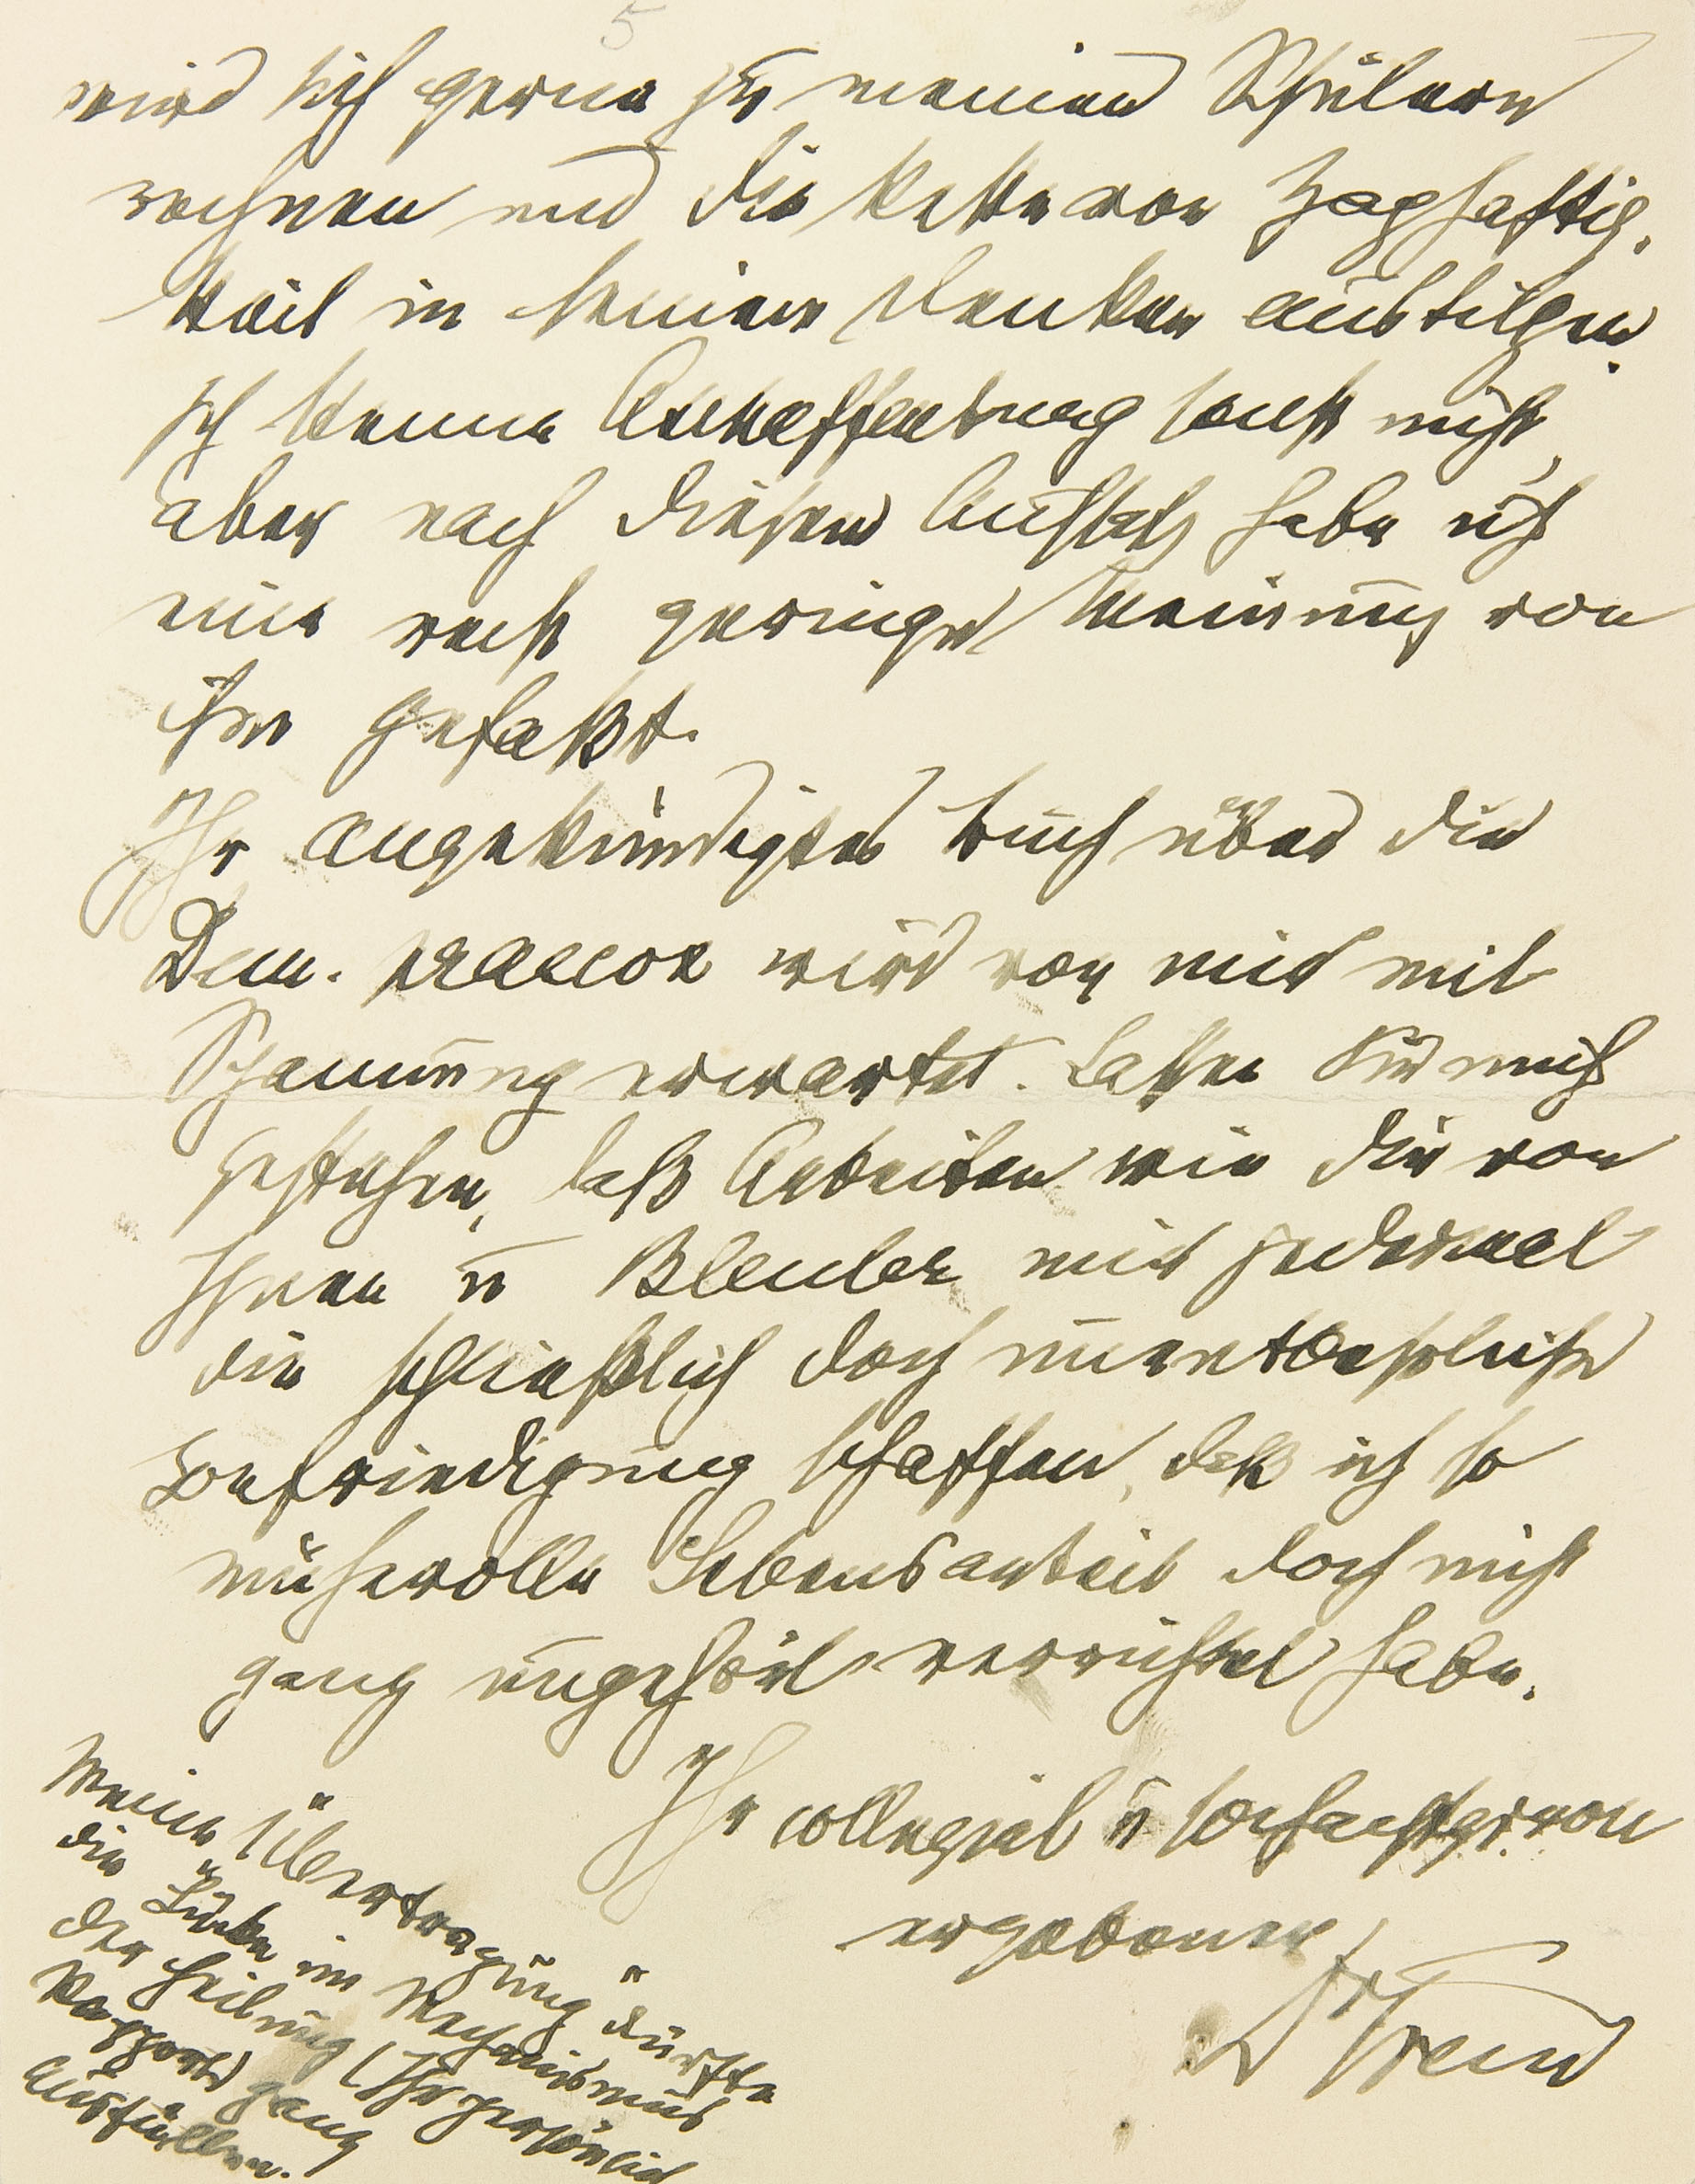 5
wird sich gerne zu meinen Schülern
rechnen und die Reste von Zaghaftig-
keit in seinem Denken austilgen.
Ich kenne Aschaffenburg sonst nicht,
aber nach diesem Aufsatz habe ich
eine recht geringe Meinung von
ihm gefaßt.
Ihr angekündigtes Buch über die
Dem. praecox wird von mir mit
Spannung erwartet. Lassen Sie mich
gestehen, daß Arbeiten wie die von
Ihnen u Bleuler mir jedesmal
die schließlich doch unentbehrliche
Befriedigung schaffen, daß ich so
mühevolle Lebensarbeit doch nicht
ganz ungehört verrichtet habe.
Ihr collegial u hochachtungsvoll
ergebener
Dr Freud
Meine „Übertragung“ dürfte
die Lücke im Mechanismus
der Heilung (Ihr persönlich
Rapport) ganz
ausfüllen.